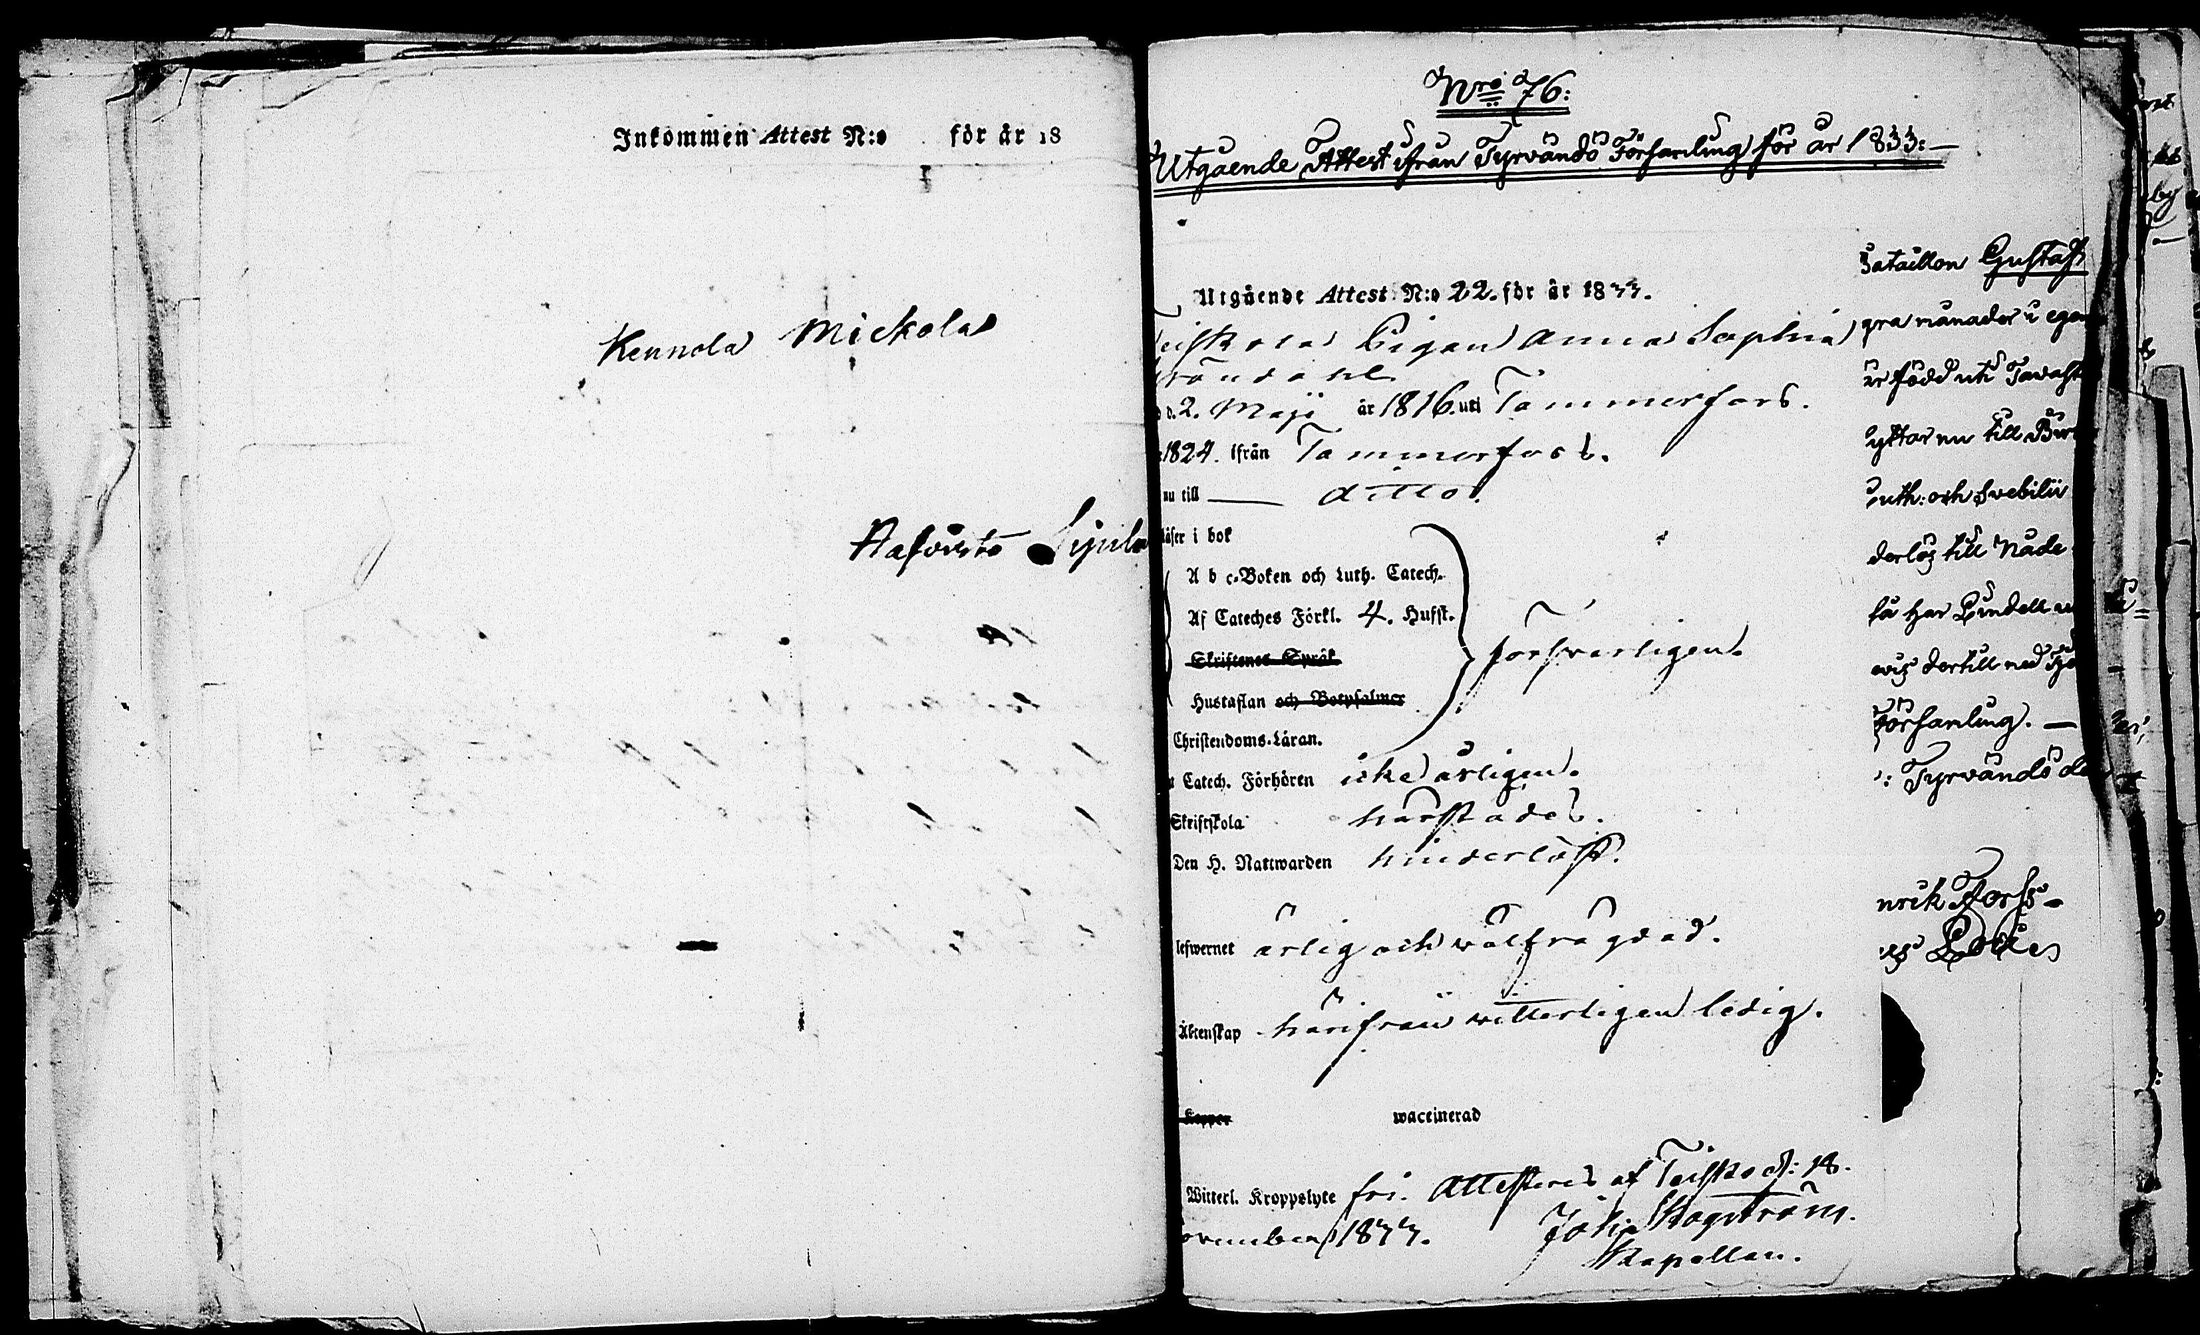 Inkommen Attest N:o för år 18
Kennola Mickola
Nro 76:
Utgående Attest ifrån Tyrvändö Församling för år 1833:—
Utgående Attest N:o 22. för år 1833.
Pigan Anna Sophia
d. 2. Maji år 1816. uti Tammerfors.
1824. ifrån Tammerfors.
nu till — ditto.
läser i bok
A b c-Boken och Luth. Catech.
Af Cateches Förkl. 4. Hufst.
Skriftenes Språk
försvarligen.
Hustaflan och Botpsalmer
Christendoms-Läran.
Catech. Förhören icke årligen.
Skriftskola härstädes.
Den H. Nattwarden hinderlöst.
lefwernet ärlig och wälfrägdad.
Äktenskap härifrån witterligen ledig.
Koppor waccinerad
Witterl. Kroppslyte fri. Attesteras af Teisko d: 18.
ovember 1833. Joh: Hagström.
Kapellan.
Bataillon Gustaf
gra månader i egen
är född uti Tavast
yttar nu till Bir
Luth: och Svebilii
derlös till Nade
få har Lindell
evis dertill med
Församling. —
: Tyrvändö de
nrik Forss